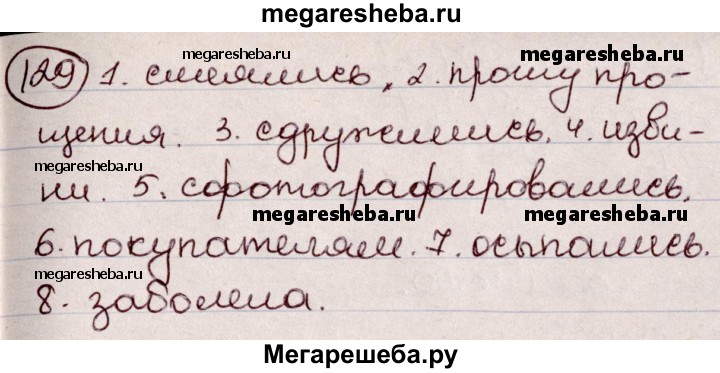 megaresheba.ru
129 1. смеялись, 2. прошу про-
megaresheba.ru megaresheba.ru
щения. 3. сдружились. 4. изви-
megaresheba.ru
ни. 5. сфотографировались.
megaresheba.ru megaresheba.ru
6. покупателям. 7. осыпались.
megaresheba.ru
8. заболела.
Мегарешеба.ру